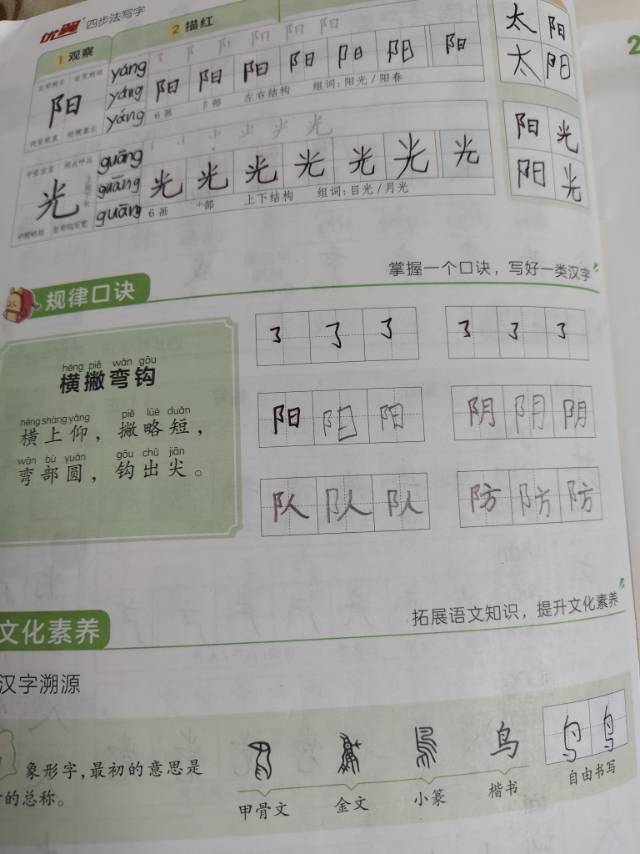 优翼 四步法写字
1 观察
2 描红
yáng
yáng
yáng
阳
阳 阳 阳 阳 阳 阳 阳
6画 阝部 左右结构 组词：阳光/阳春
太 阳
太 阳
guāng
guāng
guāng
光
光 光 光 光 光 光 光
6画 部 上下结构 组词：目光/月光
阳 光
阳 光
掌握一个口诀，写好一类汉字
规律口诀
héng piě wān gōu
横撇弯钩
héng shàng yǎng piě lüè duǎn
横上仰，撇略短，
wān bù yuán gōu chū jiān
弯部圆，钩出尖。
阳 阳 阳 阴 阴 阴
队 队 队 防 防 防
文化素养
拓展语文知识，提升文化素养
汉字溯源
象形字，最初的意思是
的总称。
鸟 鸟 鸟
甲骨文 金文 小篆 楷书 自由书写